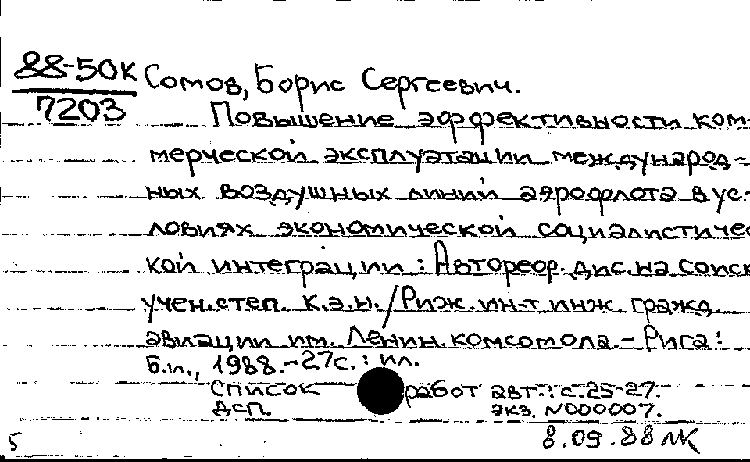 88-50к
7203
Сомов, Борис Сергеевич.
Повышение эффективности ком-
мерческой эксплуатации международ-
ных воздушных линий аэрофлота в ус-
ловиях экономической социалистичес
кой интеграции : Автореф. дис. на соиск
учен. степ. к.э.н. / Риж. ин-т инж. гражд.
авиации им. Ленин. комсомола. - Рига:
Б.и., 1988. - 27с. : ил.
Список работ авт.: с. 25-27.
ДСП. экз. N000007.
5 8.09.88